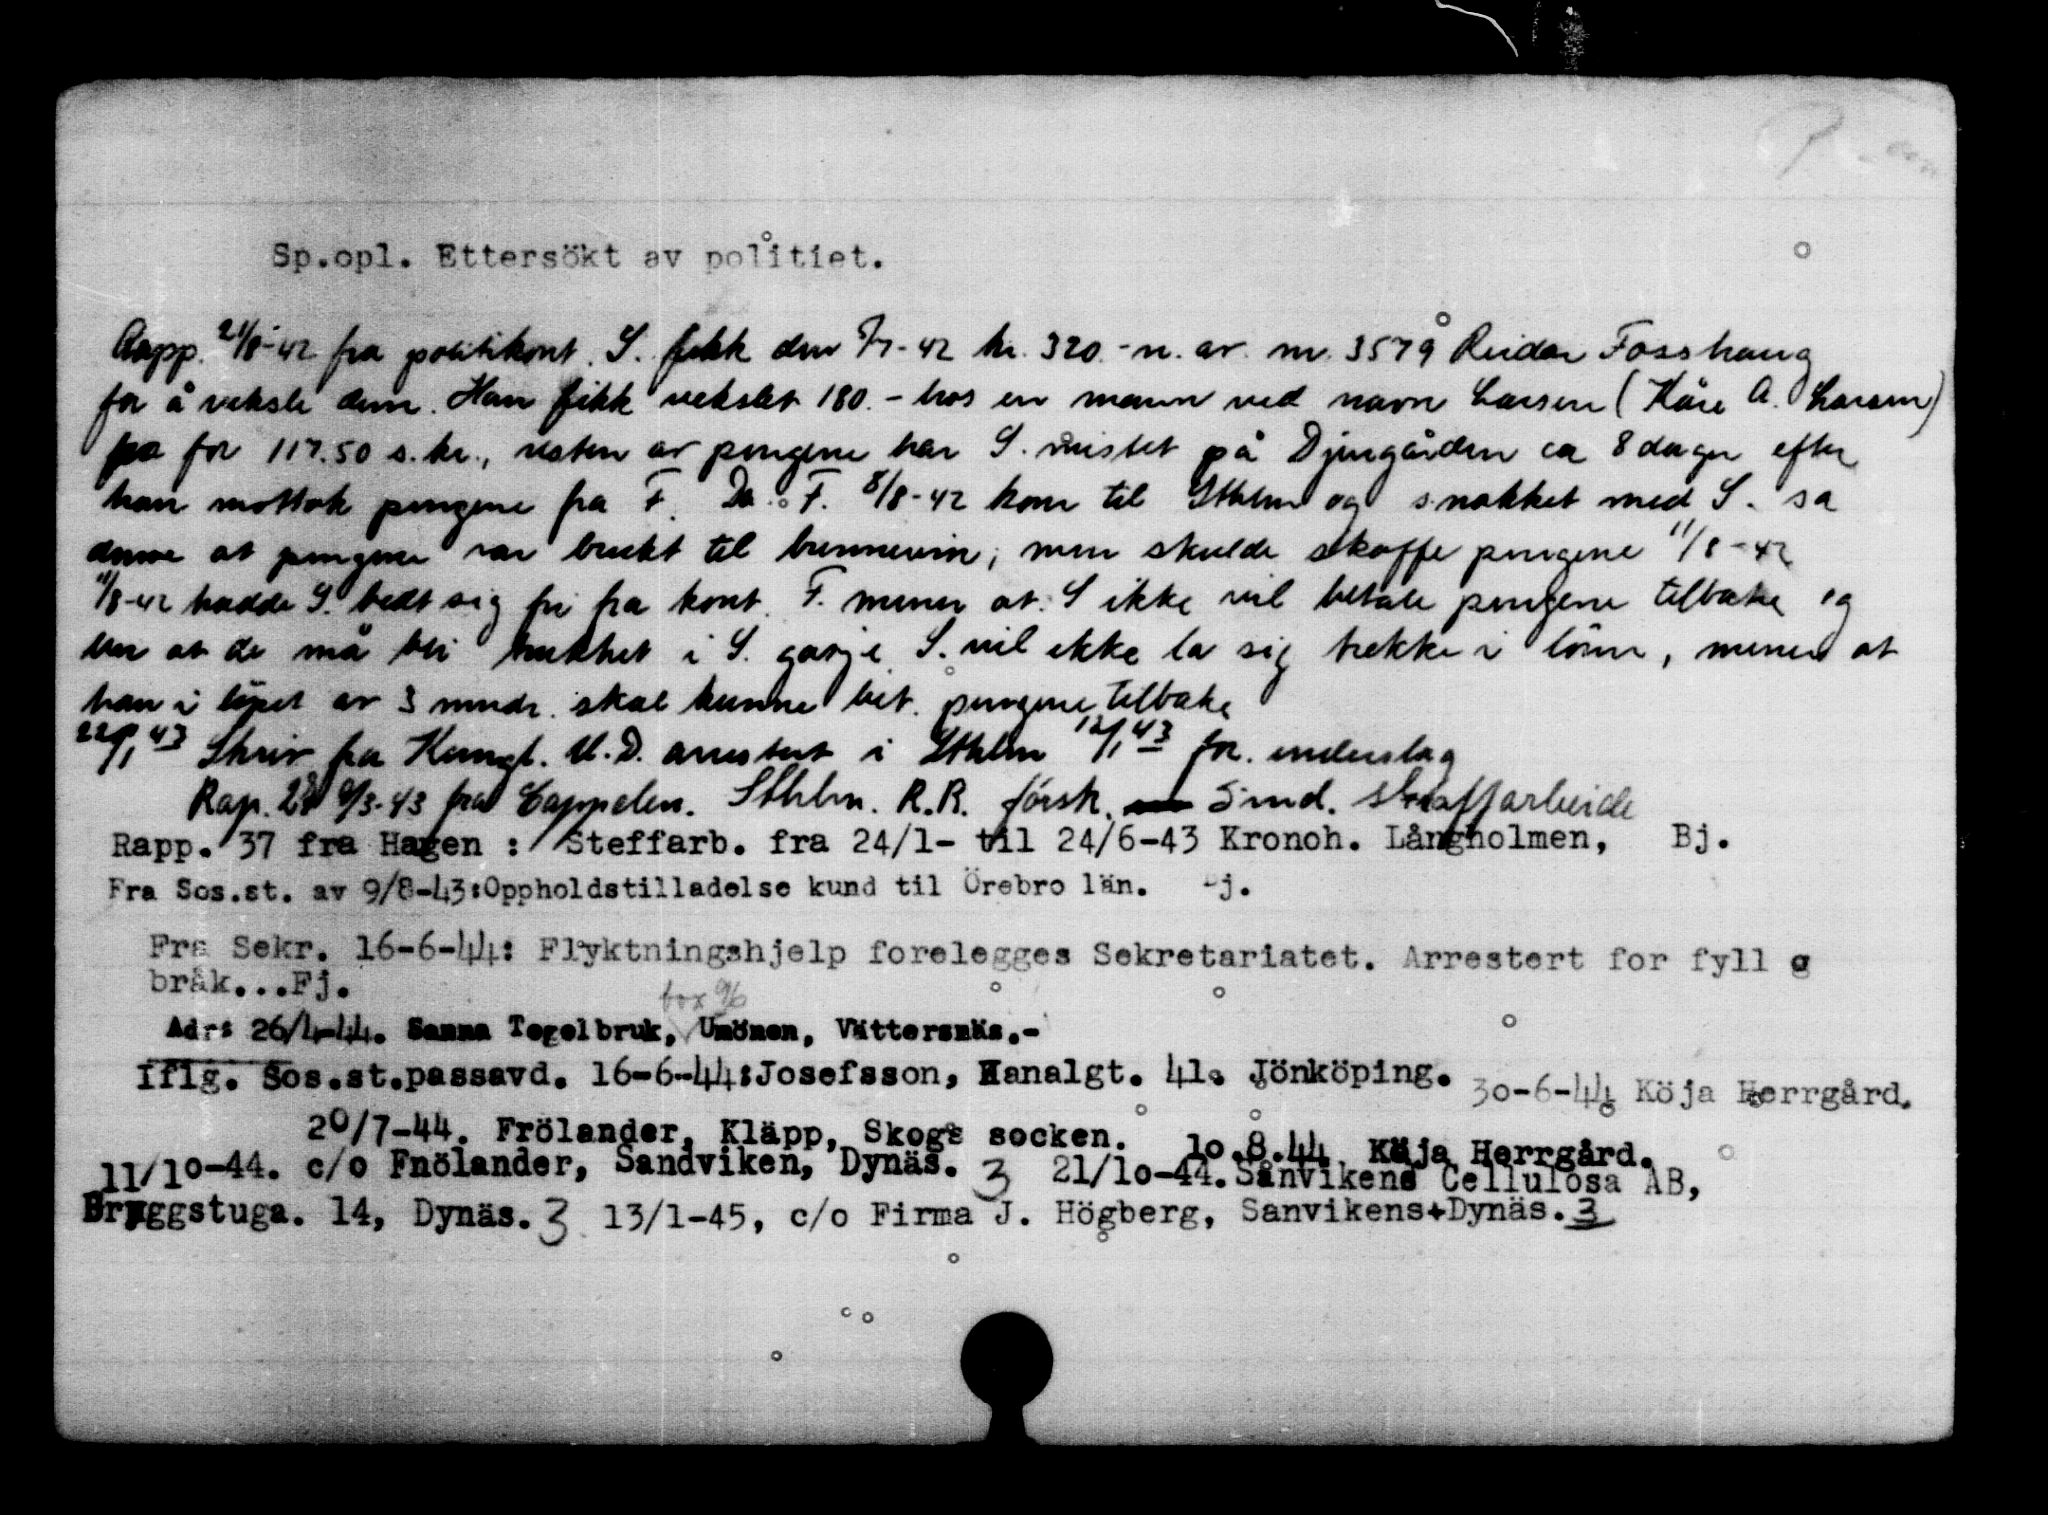 Sp.opl. Ettersökt av politiet.
Rapp. 21/8-42 fra politikont. S. fikk den 7/7-42 kr. 320.- n. av nr. 3579 Reidar Fosshaug
for å veksle dem. Han fikk vekslet 180.- hos en mann ved navn Larsen (Kåre A. Larsen)
for 117.50 s.kr., resten av pengene har S. mistet på Djurgården ca 8 dager efter
han mottok pengene fra F. Da F. 8/8-42 kom til Sthlm og snakket med S. sa
denne at pengene var brukt til brennevin, men skulde skaffe pengene 11/8-42
11/8-42 hadde S. bedt sig fri fra kont. F. mener at S ikke vil betale pengene tilbake og
ber at de må bli trukket i S. gasje S. vil ikke la sig trekke i lönn, mener at
han i löpet av 3 mndr. skal kunne bet. pengene tilbake
22/1 43 Skriv fra Kungl. U.D. arrestert i Sthlm 12/1 43 for underslag
Rap. 28 9/3-43 fra Cappelen. Sthlm. R.R. försk. 5 md. straffarbeide
Rapp. 37 fra Hagen : Steffarb. fra 24/1- til 24/6-43 Kronoh. Långholmen, Bj.
Fra Sos.st. av 9/8-43:Oppholdstilladelse kund til Örebro län. Bj.
Fra Sekr. 16-6-44: Flyktningshjelp forelegges Sekretariatet. Arrestert for fyll g
bråk...Fj.
box 96
Adr: 26/4-44. Sanna Tegelbruk, Unönen, Vättersnäs.-
Iflg. Sos.st.passavd. 16-6-44:Josefsson, Kanalgt. 41. Jönköping. 30-6-44 Köja Herrgård.
20/7-44. Frölander, Kläpp, Skogs socken. 10.8.44 Köja Herrgård.
11/10-44. c/o Fnölander, Sandviken, Dynäs. 3 21/10-44. Sånvikens Cellulosa AB,
Bryggstuga. 14, Dynäs. 3 13/1-45, c/o Firma J. Högberg, Sanvikens+Dynäs. 3